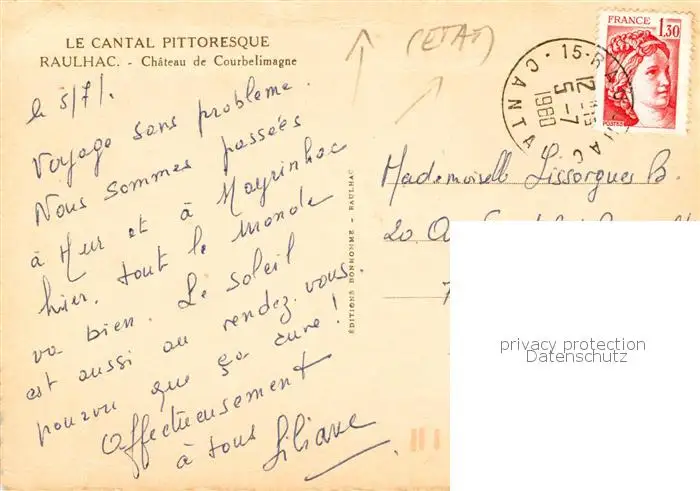 LE CANTAL PITTORESQUE
RAULHAC. - Château de Courbelimagne
le 5/7/.
Voyage sans problème.
Nous sommes passées
à Mur et à Mayrinhac
hier. tout le monde
va bien. Le soleil
est aussi au rendez-vous.
pourvu que ça dure !
Affectueusement
à tous Liliane
ÉDITIONS BONHOMME - RAULHAC
(ETAT)
15-RAULHAC
12H15
5-7
1980
CANTAL
FRANCE
1,30
POSTES
Mademoiselle Lissorgues B.
20
privacy protection
Datenschutz